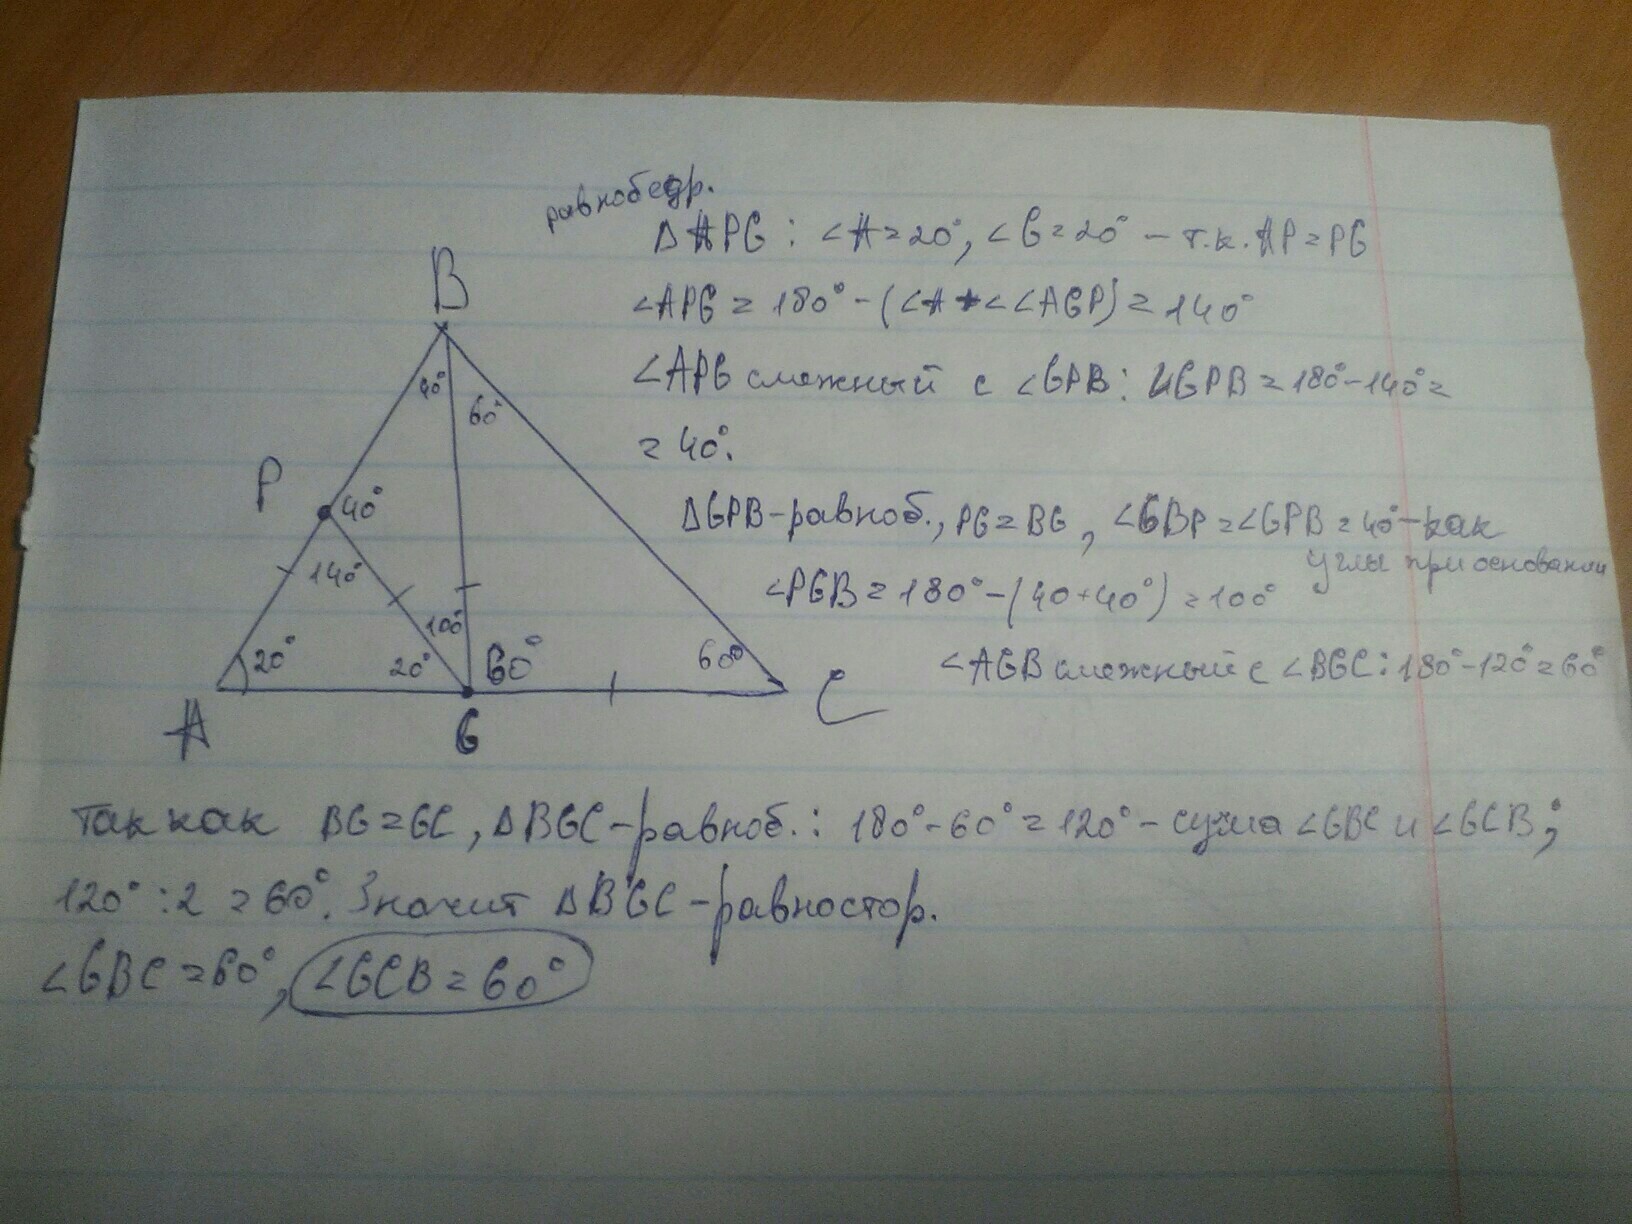 равнобедр.
∆APG: ∠A=20°, ∠G=20° – т.к. AP=PG
∠APG = 180° - (∠A+∠∠AGP) = 140°
∠APG смежный с ∠GPB: ∠GPB = 180°-140° =
= 40°.
∆GPB-равноб., PG=BG, ∠GBP=∠GPB=40°-как
углы при основании
∠PGB = 180° - (40+40°) = 100°
∠AGB смежный с ∠BGC: 180°-120°=60°
B
40°
60°
P
40°
140°
100°
20°
20°
60°
60°
A
G
C
Так как BG=GC, ∆BGC-равноб.: 180°-60°=120°- сумма ∠GBC и ∠GCB;
120° : 2 = 60°. Значит ∆BGC-равностор.
∠GBC = 60°, ∠GCB = 60°